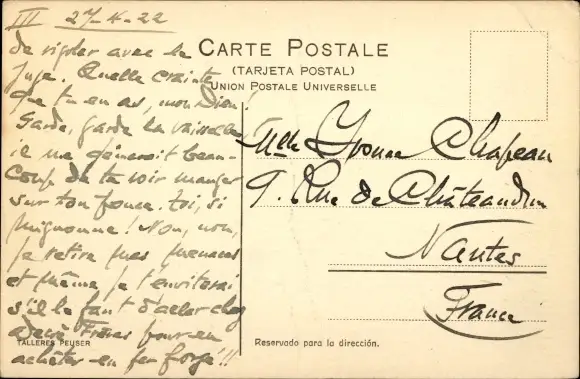 III 27-4-22
de rigoler avec le
juge. Quelle crainte
que tu en as, mon Dieu!
Garde, garde la vaisselle
il me gênerait beau-
coup de te voir manger
sur ton pouce. toi, si
mignonne! Non, non,
je retire mes menaces
et même je t'enverrai
s'il le faut d'aller chez
frères pour en
acheter en fer forgé!!
CARTE POSTALE
(TARJETA POSTAL)
UNION POSTALE UNIVERSELLE
Mlle Yvonne Chapeau
9. Rue de Châteaudun
Nantes
France
TALLERES PEUSER
Reservado para la dirección.